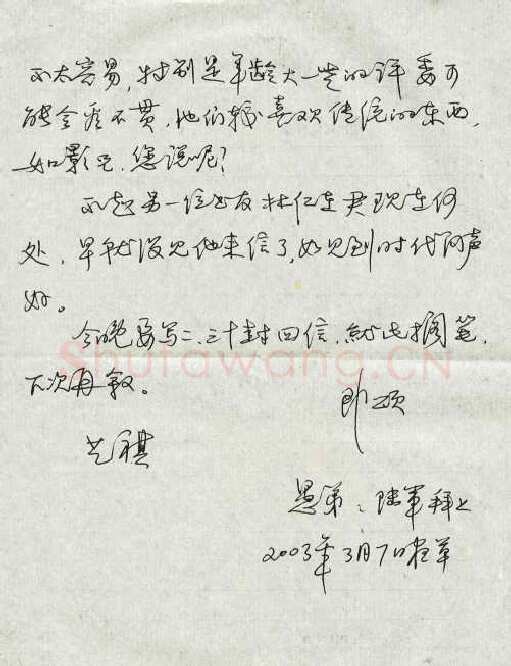 不太容易，特别是年龄大一些的评委可
能会看不惯，他们较喜欢传统的东西，
如影兄，您说呢？
不知另一位书友林仁在君现在何
处，早就没见他来信了，如见到时代问声
好。
今晚要写二、三十封回信，就此搁笔，
下次再叙。
即颂
艺祺
愚弟：陆军拜上
2003年3月7日
Shufawang.CN